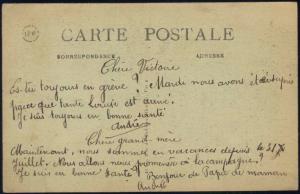 CARTE POSTALE
CORRESPONDANCE ADRESSE
Chère Victoire
Es-tu toujours en grève? Mardi nous avons été
parce que tante Louise est
Je suis toujours en bonne santé
André
Chère grand-mère
Maintenant, nous sommes en vacances depuis le 31
Juillet. Nous allons nous promener à la campagne.
Je suis en bonne santé. Bonjour de Papa et maman
André